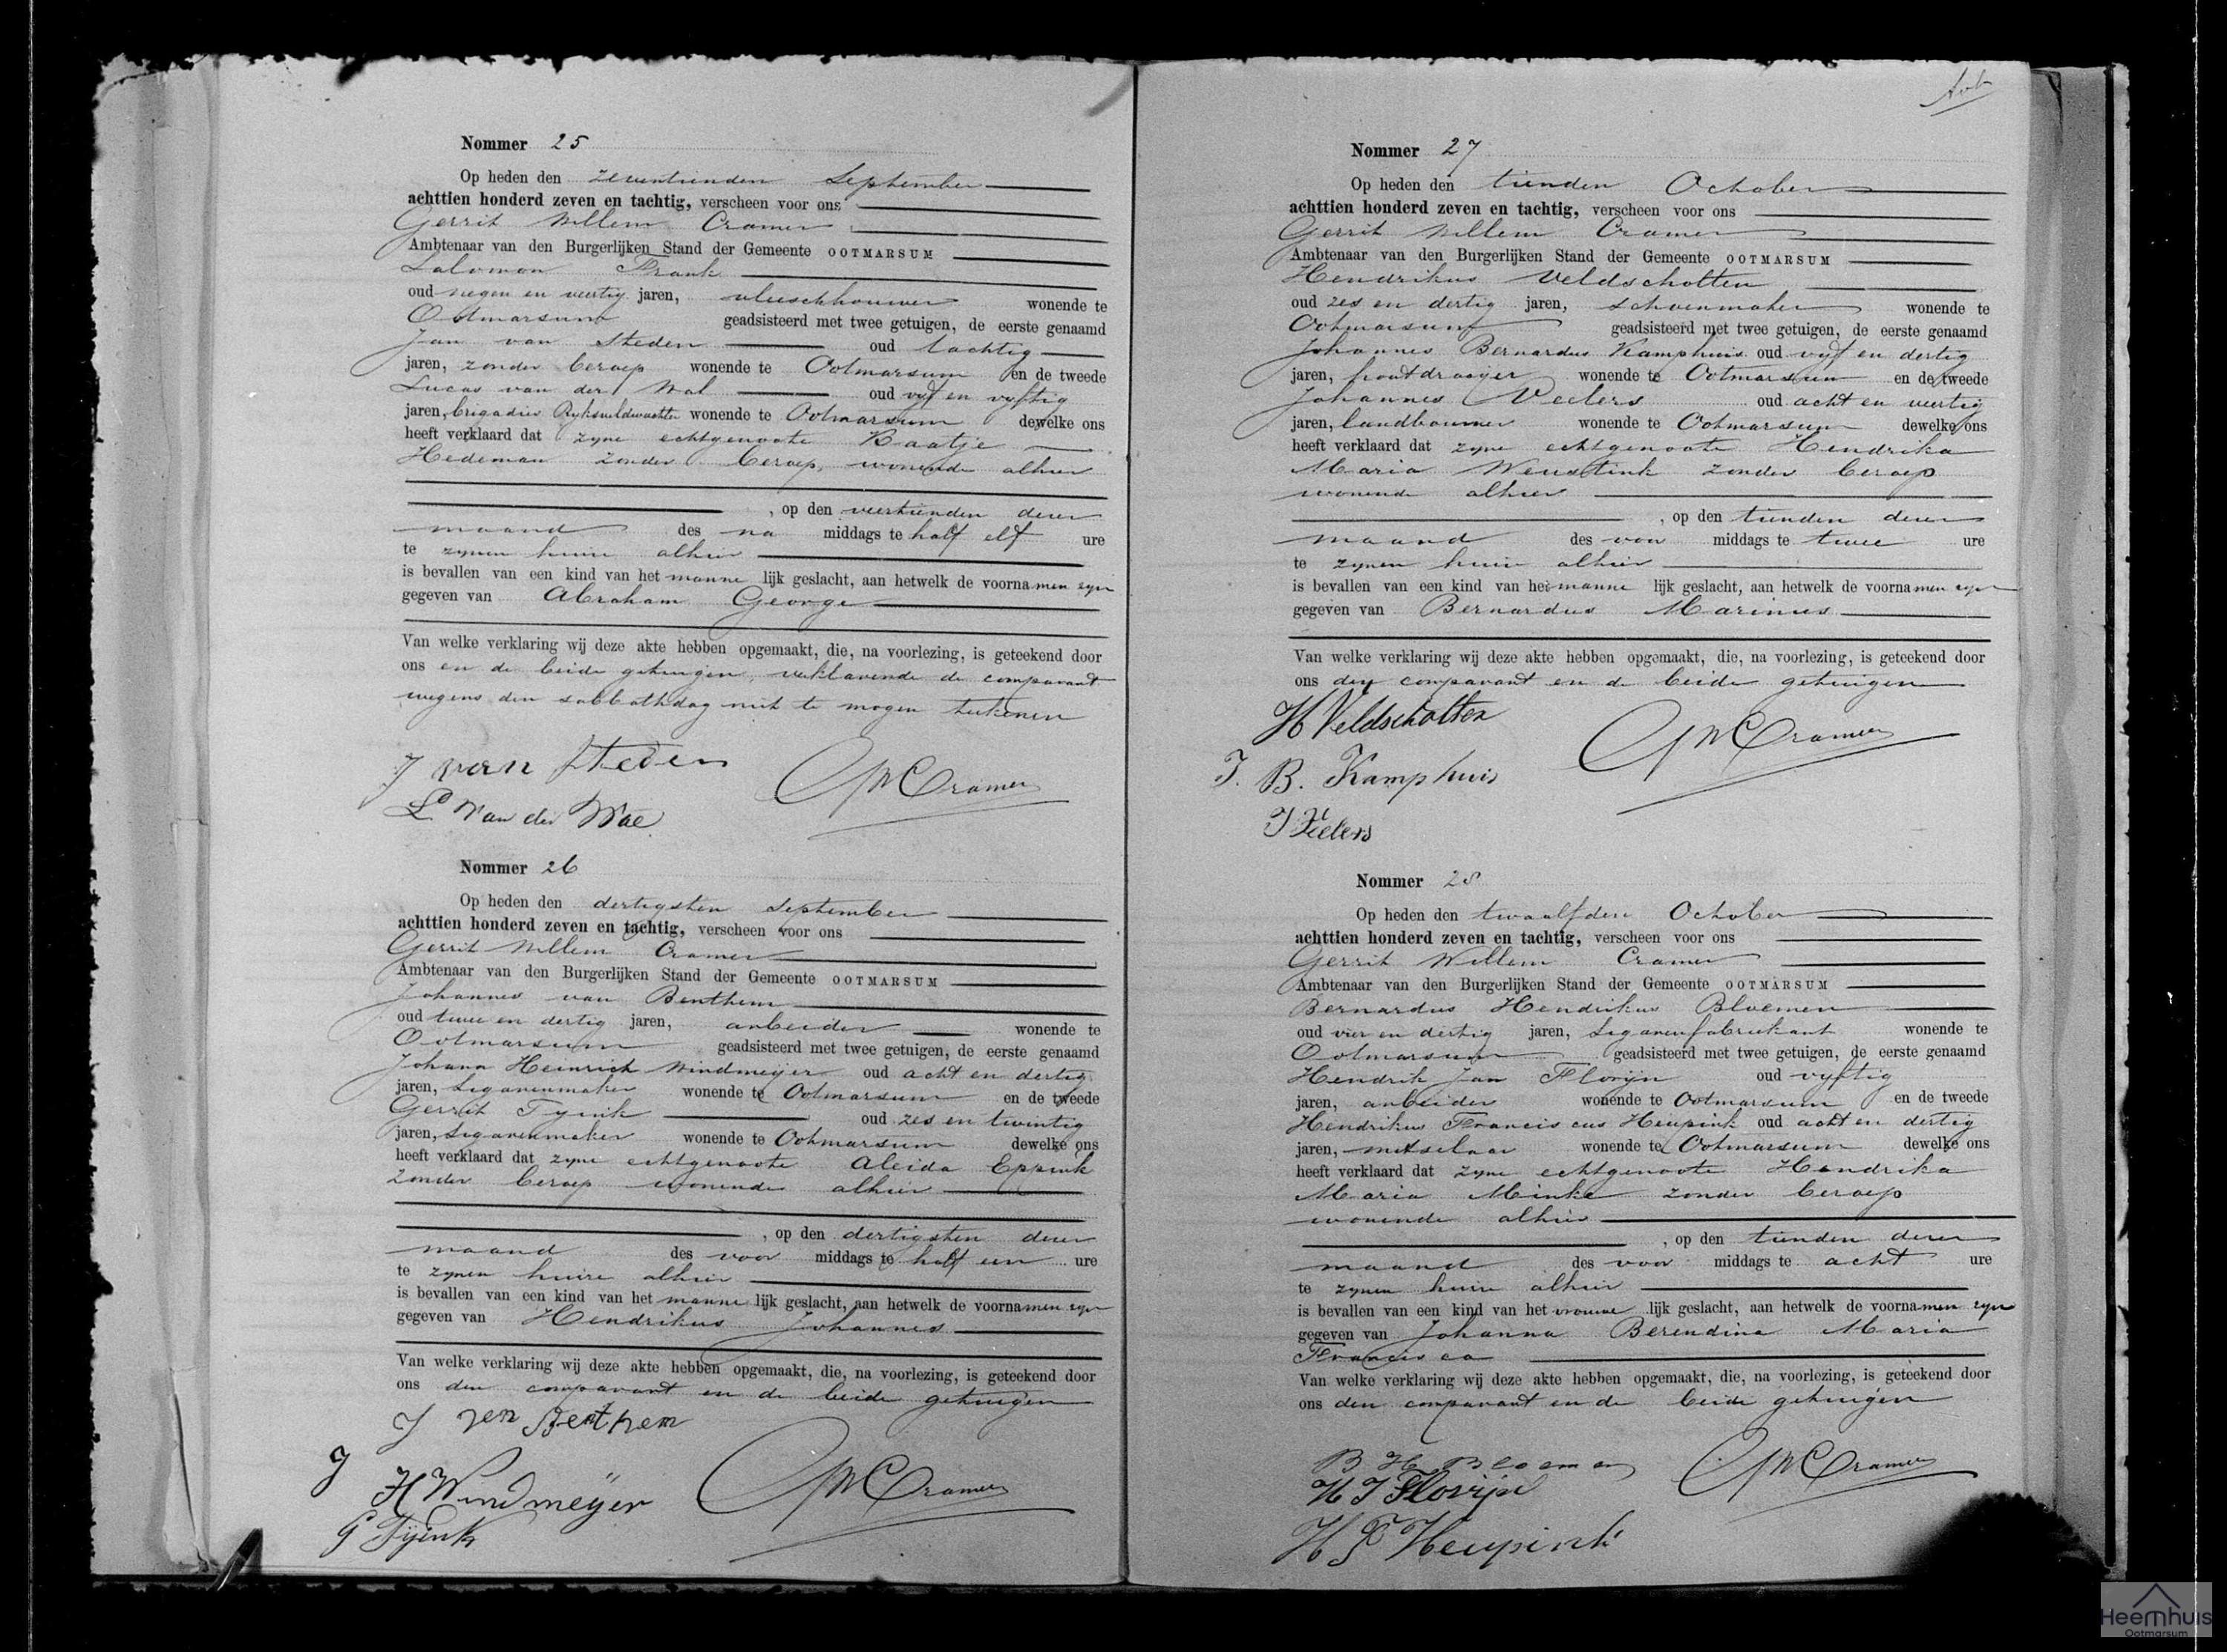 Nommer 25
Op heden den zeventienden September
achttien honderd zeven en tachtig, verscheen voor ons
Gerrit Willem Cramer
Ambtenaar van den Burgerlijken Stand der Gemeente OOTMARSUM
Salomon Frank
oud negen en veertig jaren, vleeschhouwer wonende te
Ootmarsum geadsisteerd met twee getuigen, de eerste genaamd
Jan van Steden oud tachtig
jaren, zonder beroep wonende te Ootmarsum en de tweede
Lucas van der Wal oud vyf en vyftig
jaren, brigadier Ryksveldwachter wonende te Ootmarsum dewelke ons
heeft verklaard dat zyne echtgenoote Kaatje
Hedeman zonder beroep, wonende alhier
, op den veertienden dezer
maand des na middags te half elf ure
te zynen huize alhier
is bevallen van een kind van het manne lijk geslacht, aan hetwelk de voornamen zyn
gegeven van Abraham George
Van welke verklaring wij deze akte hebben opgemaakt, die, na voorlezing, is geteekend door
ons en de beide getuigen, verklarende de comparant
wegens den sabbathdag niet te mogen teekenen
J van Steden GWCramer
L. Van der Wal
Nommer 26
Op heden den dertigsten September
achttien honderd zeven en tachtig, verscheen voor ons
Gerrit Willem Cramer
Ambtenaar van den Burgerlijken Stand der Gemeente OOTMARSUM
Johannes van Benthem
oud twee en dertig jaren, arbeider wonende te
Ootmarsum geadsisteerd met twee getuigen, de eerste genaamd
Johann Heinrich Windmeyer oud acht en dertig
jaren, Sigarenmaker wonende te Ootmarsum en de tweede
Gerrit Tyink oud zes en twintig
jaren, Sigarenmaker wonende te Ootmarsum dewelke ons
heeft verklaard dat zyne echtgenoote Aleida Eppink
zonder beroep wonende alhier
, op den dertigsten dezer
maand des voor middags te half een ure
te zynen huize alhier
is bevallen van een kind van het manne lijk geslacht, aan hetwelk de voornamen zyn
gegeven van Hendrikus Johannes
Van welke verklaring wij deze akte hebben opgemaakt, die, na voorlezing, is geteekend door
ons den comparant en de beide getuigen
J van Benthem
J H Windmeÿer GWCramer
G Tÿink
Nommer 27
Op heden den tienden October
achttien honderd zeven en tachtig, verscheen voor ons
Gerrit Willem Cramer
Ambtenaar van den Burgerlijken Stand der Gemeente OOTMARSUM
Hendrikus Veldscholten
oud zes en dertig jaren, schoenmaker wonende te
Ootmarsum geadsisteerd met twee getuigen, de eerste genaamd
Johannes Bernardus Kamphuis oud vyf en dertig
jaren, houtdraaijer wonende te Ootmarsum en de tweede
Johannes Veelers oud acht en veertig
jaren, landbouwer wonende te Ootmarsum dewelke ons
heeft verklaard dat zyne echtgenoote Hendrika
Maria Weustink zonder beroep
wonende alhier
, op den tienden dezer
maand des voor middags te twee ure
te zynen huize alhier
is bevallen van een kind van het manne lijk geslacht, aan hetwelk de voornamen zyn
gegeven van Bernardus Marinus
Van welke verklaring wij deze akte hebben opgemaakt, die, na voorlezing, is geteekend door
ons den comparant en de beide getuigen
H Veldscholten GWCramer
J. B. Kamphuis
J Veelers
Nommer 28
Op heden den twaalfden October
achttien honderd zeven en tachtig, verscheen voor ons
Gerrit Willem Cramer
Ambtenaar van den Burgerlijken Stand der Gemeente OOTMARSUM
Bernardus Hendrikus Bloemen
oud vier en dertig jaren, Sigarenfabriekant wonende te
Ootmarsum geadsisteerd met twee getuigen, de eerste genaamd
Hendrik Jan Florijn oud vyftig
jaren, arbeider wonende te Ootmarsum en de tweede
Hendrikus Franciscus Heupink oud acht en dertig
jaren, metselaar wonende te Ootmarsum dewelke ons
heeft verklaard dat zyne echtgenoote Hendrika
Maria Minke zonder beroep
wonende alhier
, op den tienden dezer
maand des voor middags te acht ure
te zynen huize alhier
is bevallen van een kind van het vrouwe lijk geslacht, aan hetwelk de voornamen zyn
gegeven van Johanna Berendina Maria
Francisca
Van welke verklaring wij deze akte hebben opgemaakt, die, na voorlezing, is geteekend door
ons den comparant en de beide getuigen
B H Bloemen GWCramer
H J Florijn
H F Heupink
Heemhuis
Ootmarsum